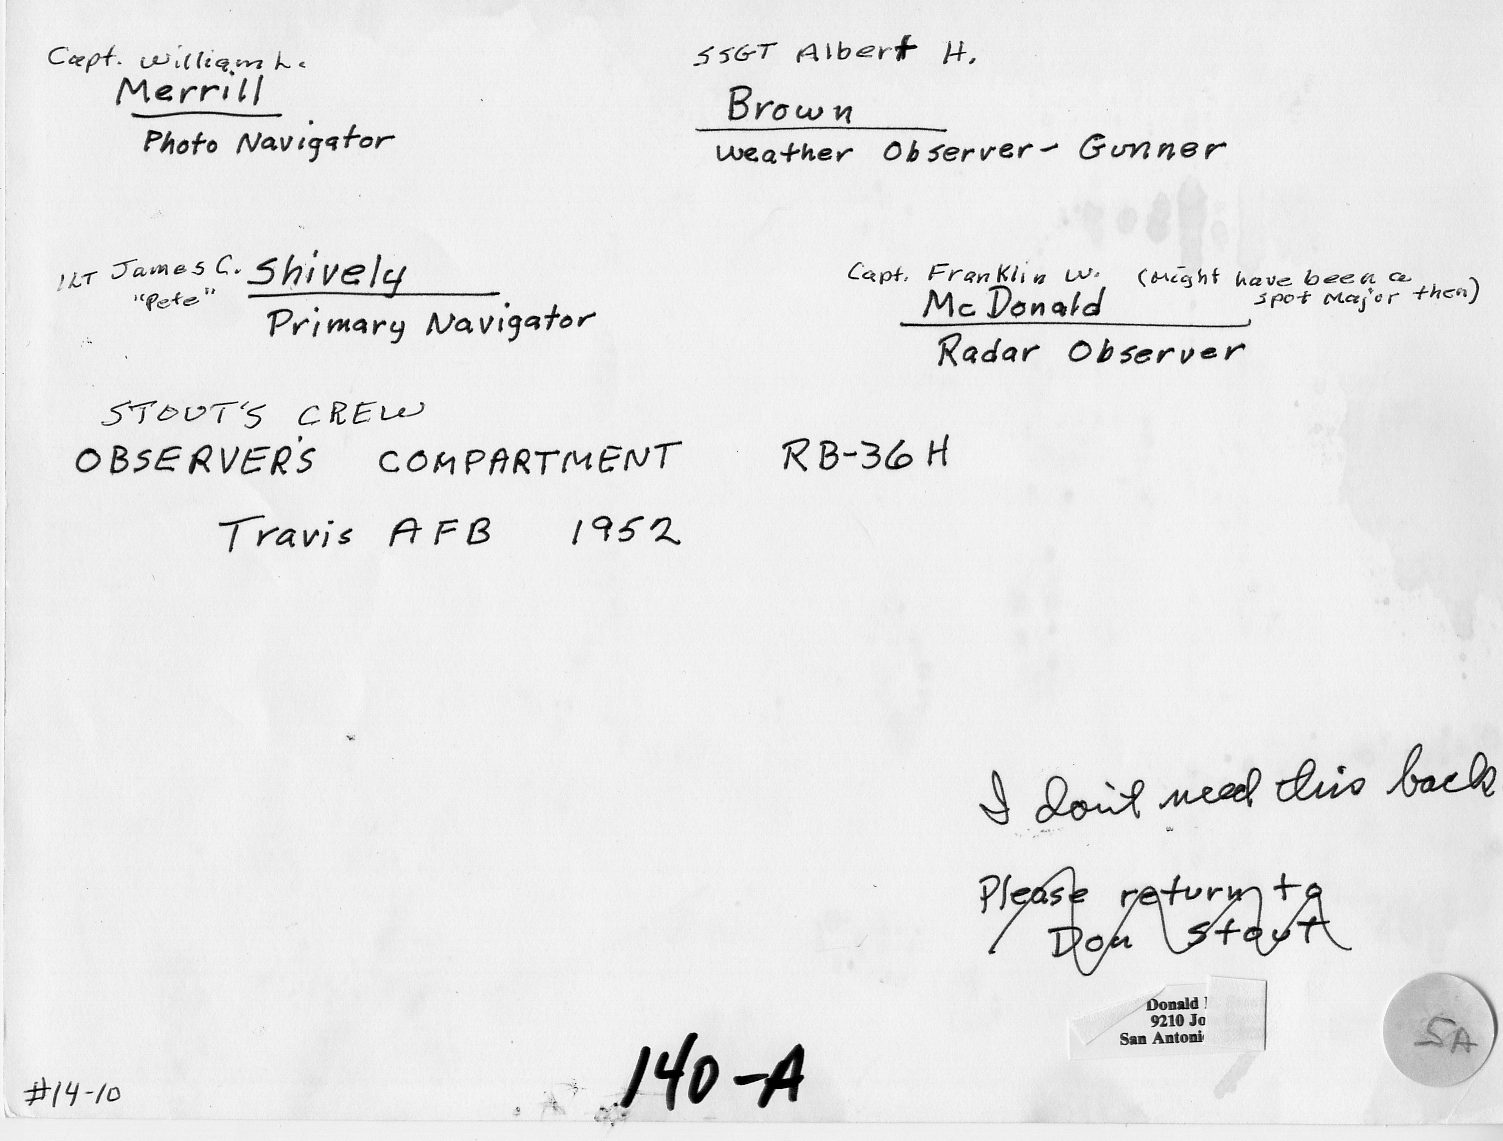 Capt. William L.
Merrill
Photo Navigator
SSGT Albert H.
Brown
Weather Observer- Gunner
1LT James C. Shively
"Pete"
Primary Navigator
Capt. Franklin W. (Might have been a
McDonald spot Major then)
Radar Observer
STOUT'S CREW
OBSERVER'S COMPARTMENT RB-36H
Travis AFB 1952
I don't need this back
Please return to
Don Stout
Donald
9210 Jo
San Antoni
5A
140-A
#14-10